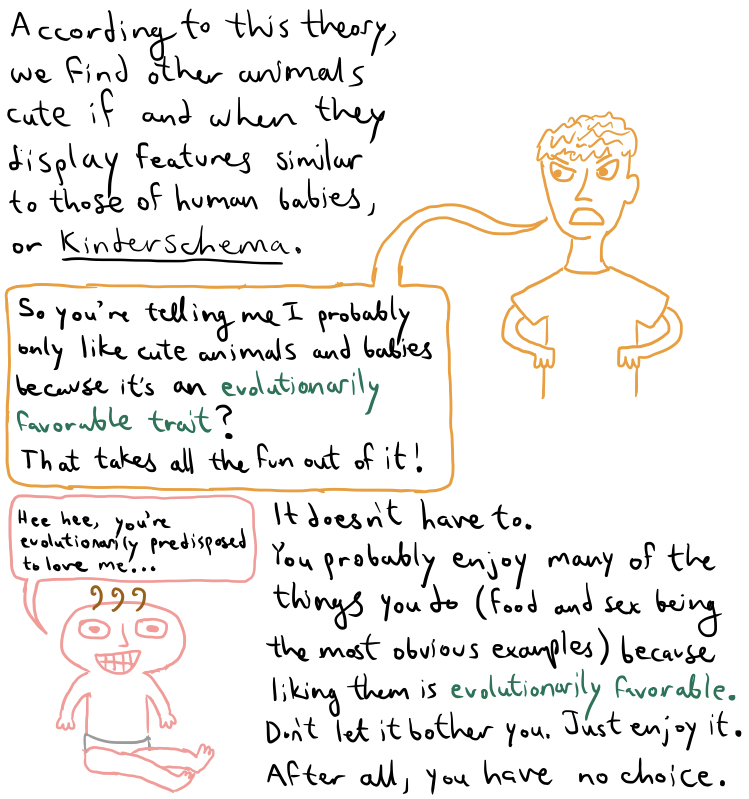 According to this theory,
we find other animals
cute if and when they
display features similar
to those of human babies,
or Kinderschema.
So you're telling me I probably
only like cute animals and babies
because it's an evolutionarily
favorable trait?
That takes all the fun out of it!
Hee hee, you're
evolutionarily predisposed
to love me...
It doesn't have to.
You probably enjoy many of the
things you do (food and sex being
the most obvious examples) because
liking them is evolutionarily favorable.
Don't let it bother you. Just enjoy it.
After all, you have no choice.